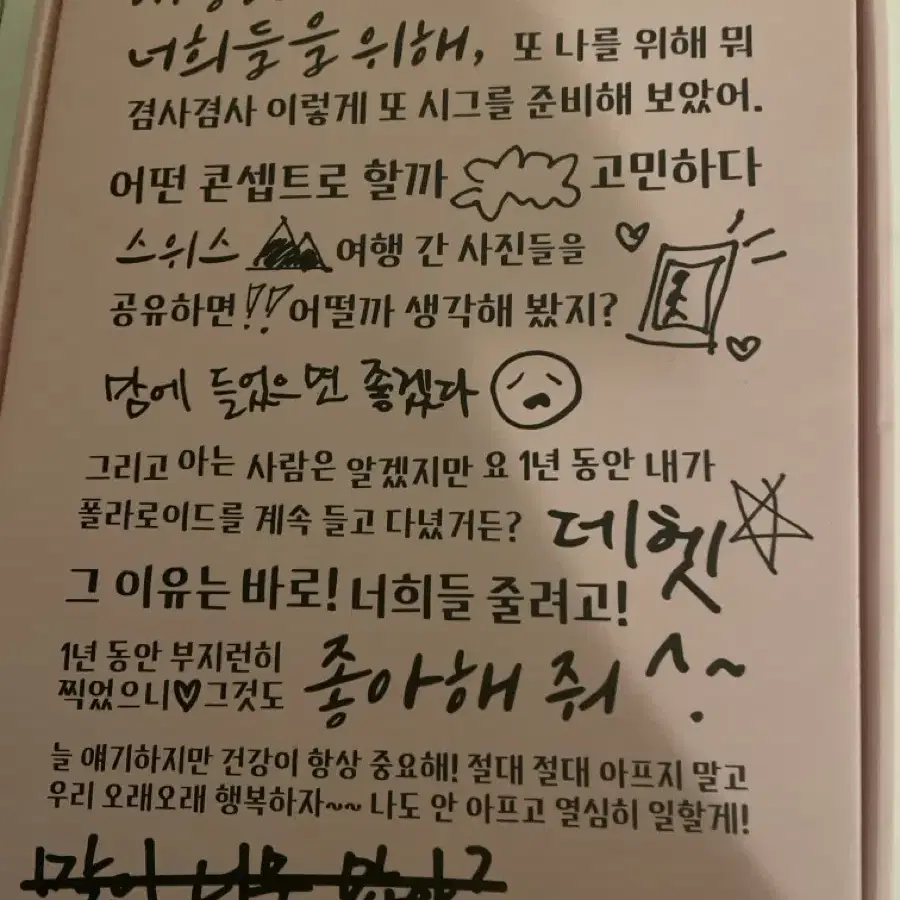 너희들을 위해, 또 나를 위해 뭐
겸사겸사 이렇게 또 시그를 준비해 보았어.
어떤 콘셉트로 할까 고민하다
스위스 여행 간 사진들을
공유하면!! 어떨까 생각해 봤지?
맘에 들었으면 좋겠다
그리고 아는 사람은 알겠지만 요 1년 동안 내가
폴라로이드를 계속 들고 다녔거든? 데헷
그 이유는 바로! 너희들 줄려고!
1년 동안 부지런히
찍었으니♥그것도 좋아해 줘 ^.~
늘 얘기하지만 건강이 항상 중요해! 절대 절대 아프지 말고
우리 오래오래 행복하자~~ 나도 안 아프고 열심히 일할게!